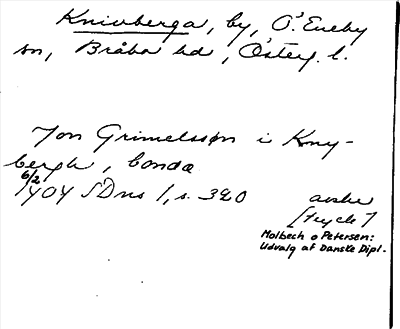 Knivberga, by, Ö. Eneby
sn, Bråbo hd, Österg. l.
Jon Grimelsson i Kny-
bergh, bonde
1404 6/2 SDns 1, s. 320
avskr
[tryck]
Molbech o Petersen:
Udvalg af Danske Dipl.